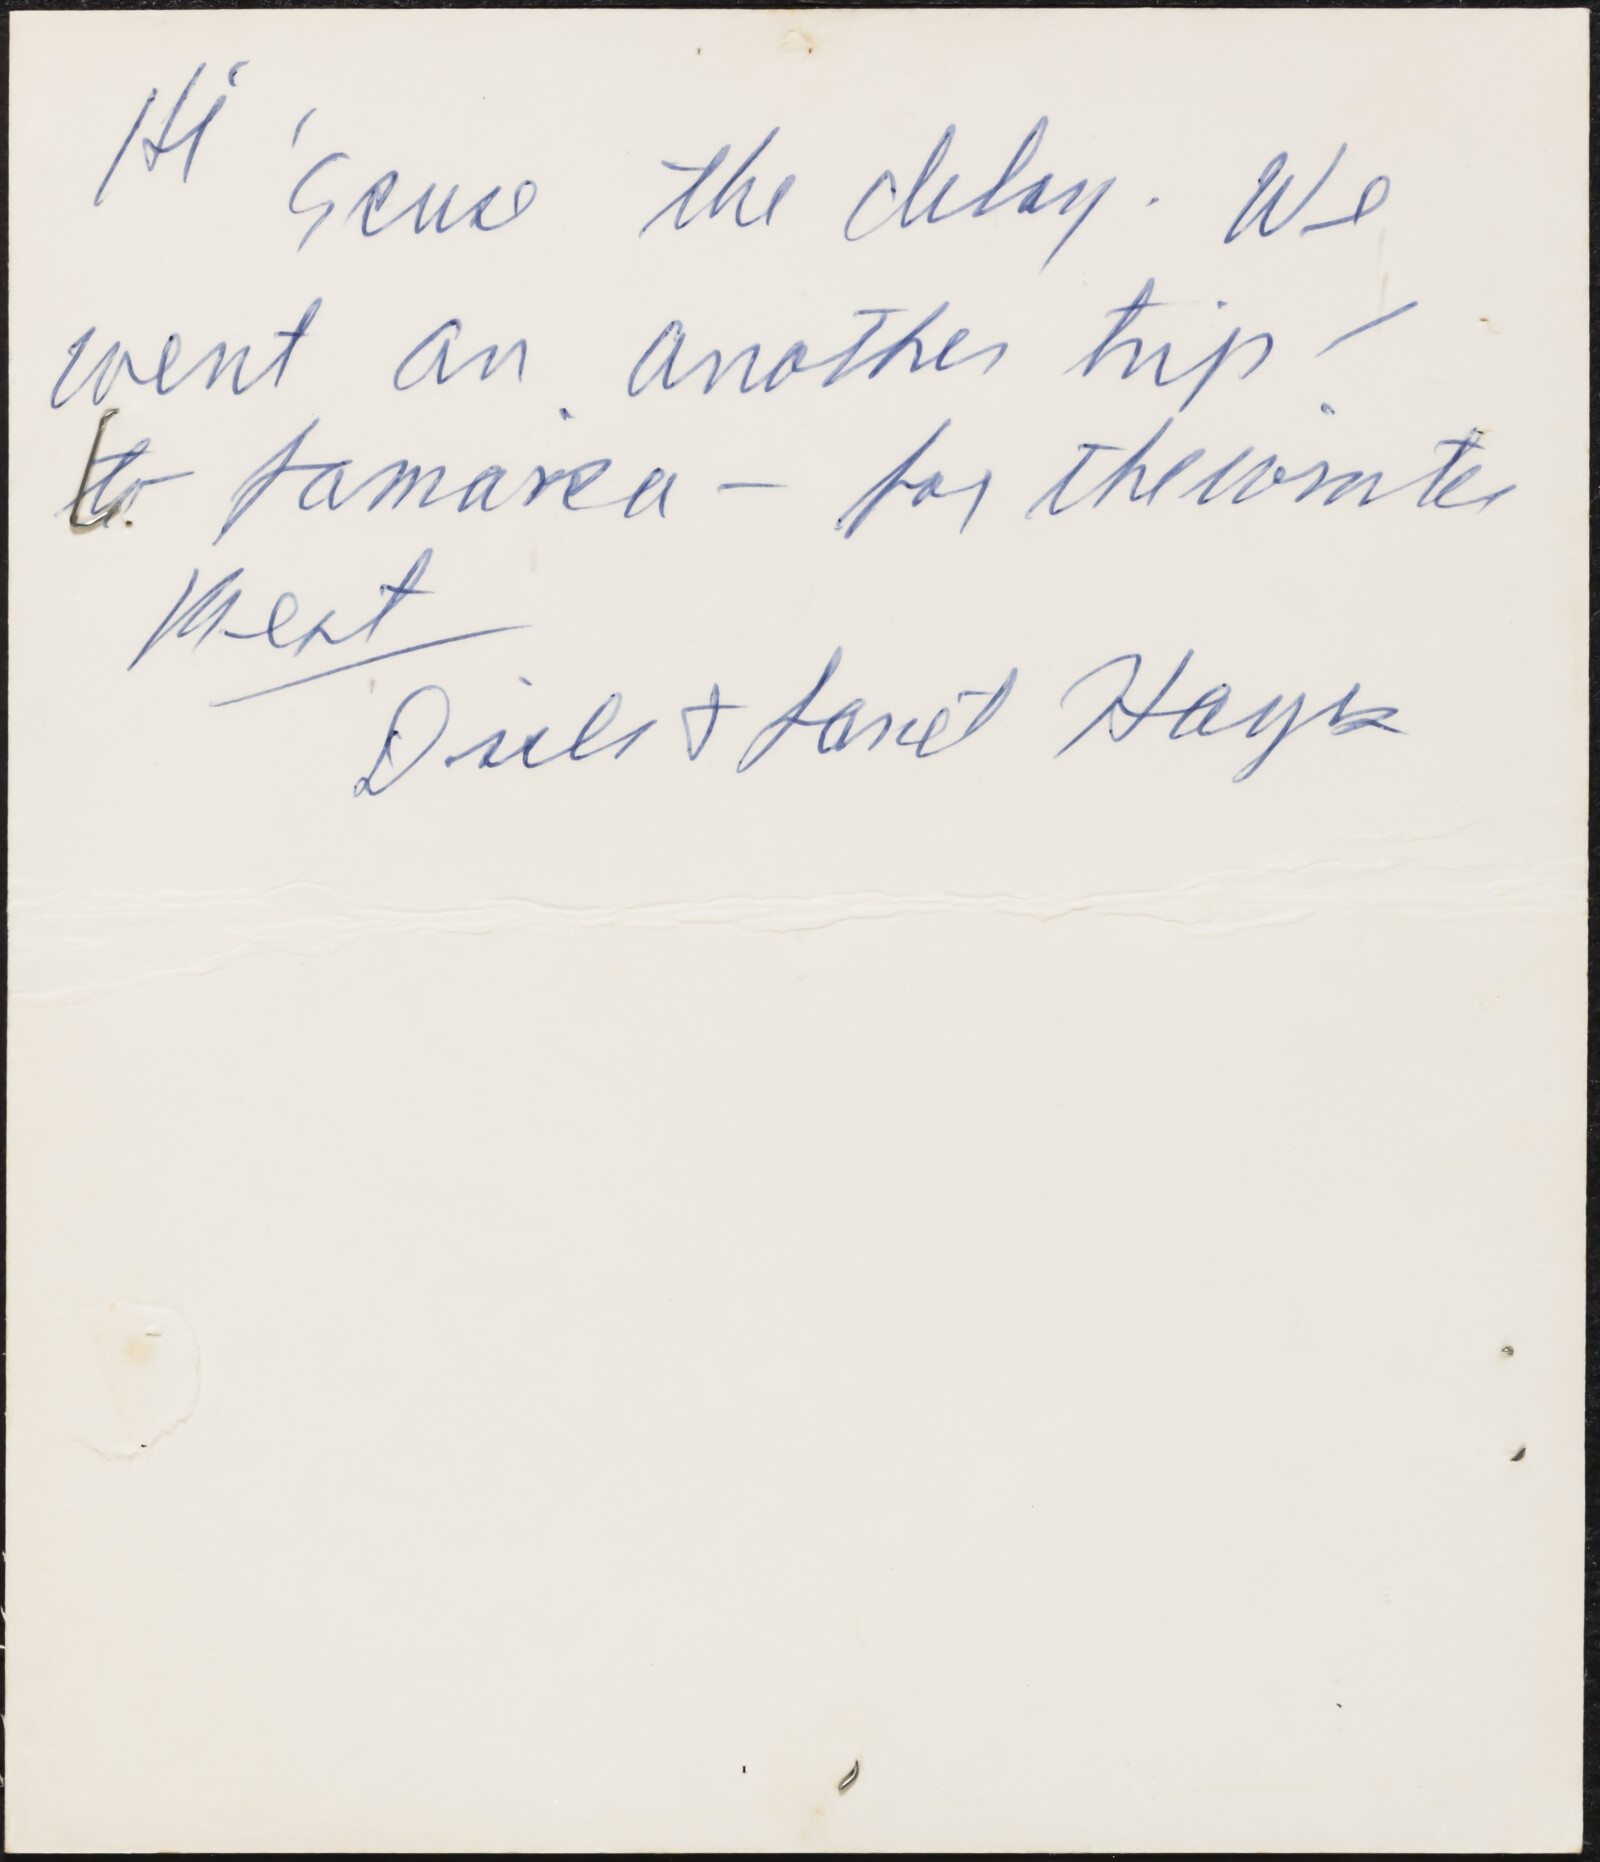 Hi 'Scuse the delay. We
went on another trip -
to Jamaica - for the winter
meat
& Janet Hays